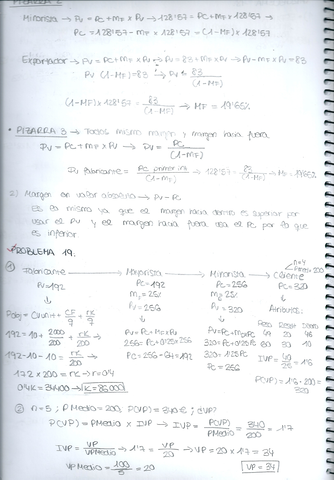 PIZARRA 2
Minorista → Pv = Pc + MF x Pv → 128'57 = Pc + MF x 128'57 →
Pc = 128'57 - MF x 128'57 → (1-MF) x 128'57
Exportador → Pv = Pc + MF x Pv → Pv = 83 + MF x Pv → Pv - MF x Pv = 83
Pv (1-MF) = 83 → Pv = 83/(1-MF)
(1-MF) x 128'57 = 83/(1-MF) → MF = 19'65%
• PIZARRA 3 → Todos mismo margen y margen hacia fuera
Pv = Pc + MF x Pv → Pv = Pc/(1-MF)
Pv fabricante = Pc primer int/(1-MF) → 128'57 = 83/(1-MF) → MF = 19'65%
2) Margen en valor absoluto → Pv - Pc
Es el mismo ya que el margen hacia dentro es superior por
usar el Pv y el margen hacia fuera usa el Pc por lo que
es inferior
PROBLEMA 19.
① Fabricante → Mayorista → Minorista → Cliente n=4 PMedio=200
Pv=192 Pc=192 Pc=256 Pc=320
m1=25% m2=25%
Pv=256 Pv=320 Atributos:
Pobj = Cvun + CF/q + rK/q Pv=Pc+Mc x Pv Pv=Pc+Mc x Pc Peso Respe Diseño
192 = 10 + 2000/200 + rK/200 256=Pc+0'25x256 320=Pc+0'25xPc
192-10-10 = rK/200 → PC=256-64=192 320=1'25Pc IVP = 40/25 = 1'6
Pc=256
172 x 200 = rK → r=0'4 P(VP)=1'6·200=
0'4K=34400 → K=86000 320
② n=5; PMedio=200, P(VP)=340€; ¿VP?
P(VP)=PMedio x IVP → IVP = P(VP)/PMedio = 340/200 = 1'7
IVP = VP/VPMedio → 1'7 = VP/20 → VP = 20 x 1'7 = 34
VPMedio = 100/5 = 20 VP = 34